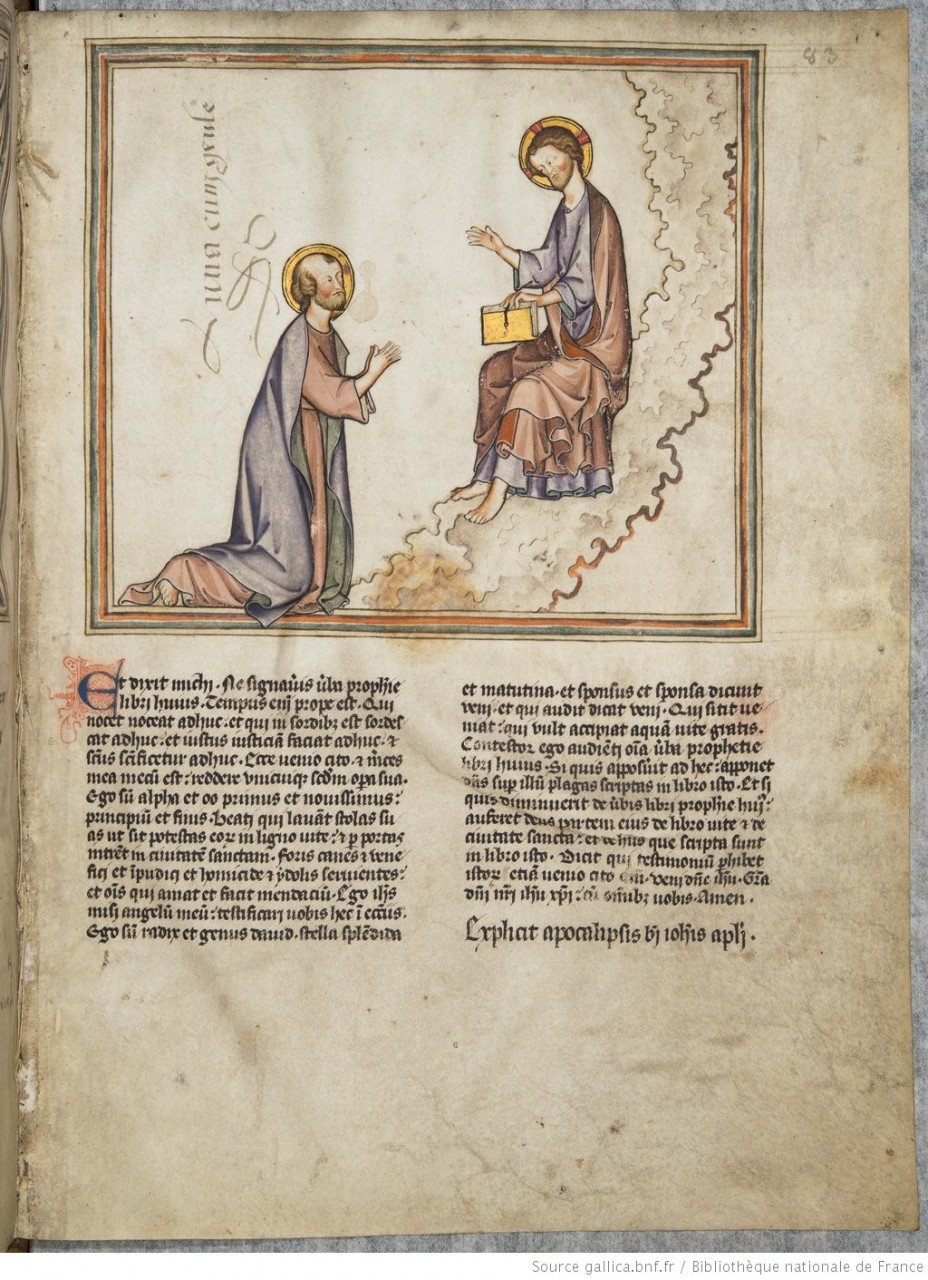 83
una cum
Et dixit michi · Ne signaũis ũba prophie
libri huius · Tempus eni̅ prope est · Qui
nocet noceat adhuc · et qui in sordibꝫ est sordes
cat adhuc : et iustus iusticiā faciat adhuc · ⁊
sc̅us sc̅ificetur adhuc · Ecce uenio cito · ⁊ m̅ces
mea mecū est : reddere unicuiqꝫ scd̅m opa sua ·
Ego sū alpha et oo primus et nouissimus :
principiū et finis · Beati qui lauāt stolas su
as ut sit potestas eoꝝ in ligno uite : ⁊ p portas
intrēt in ciuitatē sanctam · foris canes ⁊ uene
fici et ipudici et homicide ⁊ ydolis seruientes :
et o̅is qui amat et facit mendaciū · Ego ih̅s
misi angelū meū : testificari uobis hec ī ecc̅iis ·
Ego sū radix et genus dauid · stella splēdida
et matutina · et sponsus et sponsa dicunt
veni · et qui audit dicat veni · Qui sitit ue
niat : qui vult accipiat aquā uite gratis ·
Contestor ego audiēti o̅ia ũba prophetie
libri huius · Si quis apposũit ad hec : apponet
d̅us sup illū plagas scriptas in libro isto · Et si
quis diminuerit de ũbis libri prophie huiꝰ :
auferet deus partem eius de libro uite ⁊ de
ciuitate sancta : et de hiis que scripta sunt
in libro isto · Dicit qui testimoniū phibet
istoꝝ · etiā uenio cito · veni dn̅e ih̅u · Gr̅a
dn̅i nr̅i ih̅u xp̅i : cū omībꝫ uobis · Amen ·
Explicit apocalipsis bi̅ ioh̅is apl̅i ·
Source gallica.bnf.fr / Bibliothèque nationale de France